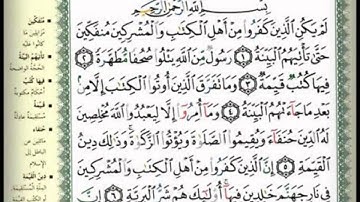 بِسْمِ اللَّهِ الرَّحْمَٰنِ الرَّحِيمِ
لَمْ يَكُنِ الَّذِينَ كَفَرُوا مِنْ أَهْلِ الْكِتَابِ وَالْمُشْرِكِينَ مُنفَكِّينَ
حَتَّىٰ تَأْتِيَهُمُ الْبَيِّنَةُ ١ رَسُولٌ مِّنَ اللَّهِ يَتْلُو صُحُفًا مُّطَهَّرَةً ٢
فِيهَا كُتُبٌ قَيِّمَةٌ ٣ وَمَا تَفَرَّقَ الَّذِينَ أُوتُوا الْكِتَابَ إِلَّا مِن
بَعْدِ مَا جَاءَتْهُمُ الْبَيِّنَةُ ٤ وَمَا أُمِرُوا إِلَّا لِيَعْبُدُوا اللَّهَ مُخْلِصِينَ
لَهُ الدِّينَ حُنَفَاءَ وَيُقِيمُوا الصَّلَاةَ وَيُؤْتُوا الزَّكَاةَ وَذَٰلِكَ دِينُ
الْقَيِّمَةِ ٥ إِنَّ الَّذِينَ كَفَرُوا مِنْ أَهْلِ الْكِتَابِ وَالْمُشْرِكِينَ
فِي نَارِ جَهَنَّمَ خَالِدِينَ فِيهَا أُولَٰئِكَ هُمْ شَرُّ الْبَرِيَّةِ ٦ إِنَّ
مُنفَكِّينَ
تَأْتِيَهُمُ الْبَيِّنَةُ
فِيهَا كُتُبٌ
قَيِّمَةٌ
حُنَفَاءَ
الإسلام
دِينُ الْقَيِّمَةِ